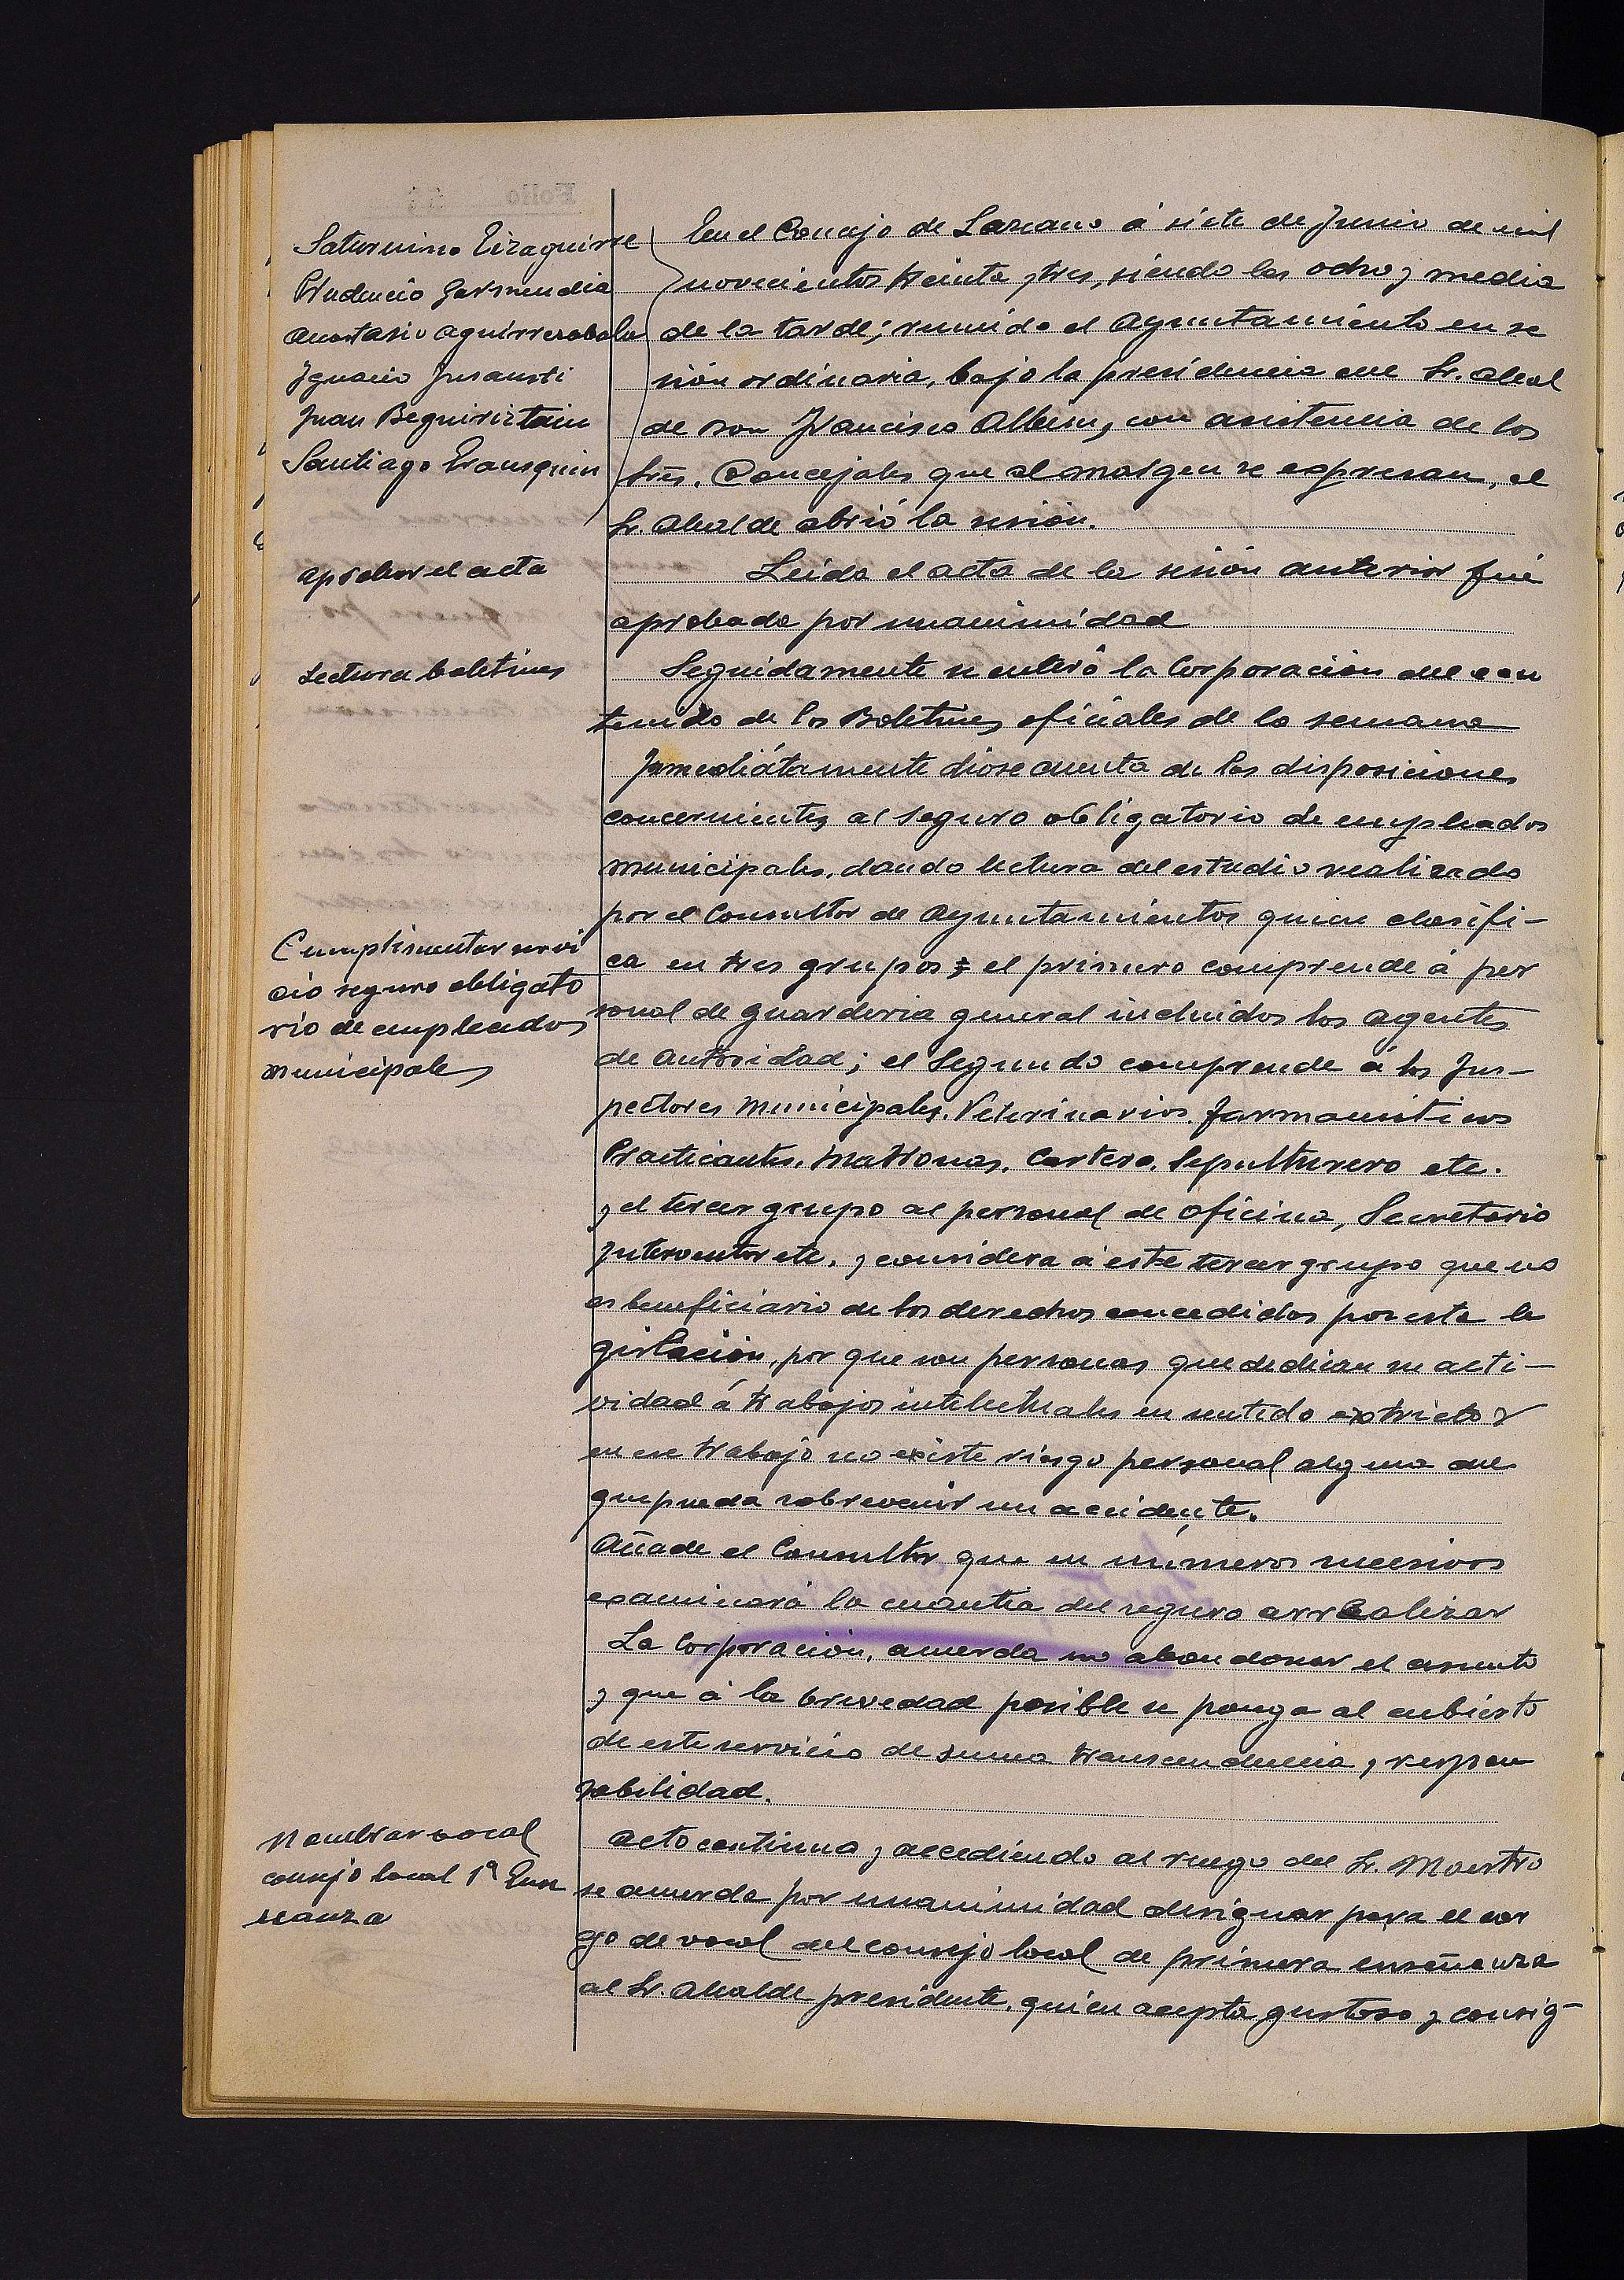 Saturnino Eizaguirre
Prudencio Garmendia
Anastasio Aguirrezabala
Ignacio Insausti
Juan Beguiristain
Santiago Irausquin
En el Concejo de Lazcano á siete de Junio de mil
novecientos treinta y tres, siendo las ocho y media
de la tarde; reunido el Ayuntamiento en se
sión ordinaria, bajo la presidencia del Sr. Alcal
de Don Francisco Albisu, con asistencia de los
Srs. Concejales que al margen se expresan, el
Sr. Alcalde abrió la sesión.
Aprobar el acta
Leida el acta de la sesión anterior fué
aprobada por unanimidad
Lectura boletines
Seguidamente se enteró la Corporación del con
tenido de los Boletines oficiales de la semana
Inmediátamente diose cuenta de las disposiciones
concernientes al seguro obligatorio de empleados
municipales, dando lectura del estudio realizado
por el Consultor de Ayuntamientos quien clasifi-
Cumplimentar servi
cio seguro obligato
rio de empleados
municipales
ca en tres grupos: el primero comprende á per
sonal de guarderia general incluidos los agentes
de autoridad; el segundo comprende á los Ins-
pectores Municipales. Veterinarios. farmaceuticos
Practicantes. Matronas. Cartero. Sepulturero etc.
y el tercer grupo al personal de oficina, Secretario
Interventor etc. y considera á este tercer grupo que no
es beneficiario de los derechos concedidos por esta le
gislación, por que son personas que dedican su acti-
vidad á trabajos intelectuales en sentido extricto y
en ese trabajo no existe riesgo personal alguno del
que pueda sobrevenir un accidente.
Añade el Consultor que en números sucesivos
examinará la cuantia del seguro a realizar
La Corporación, acuerda no abandonar el asunto
y que á la brevedad posible se ponga al cubierto
de este servicio de suma transcendencia y respon
sabilidad.
Nombrar vocal
consejo local 1ª Ense
ñanza
Acto continuo y accediendo al ruego del Sr. Maestro
se acuerda por unanimidad designar para el car
go de vocal del consejo local de primera enseñanza
al Sr. Alcalde presidente. quien acepta gustoso y consig-